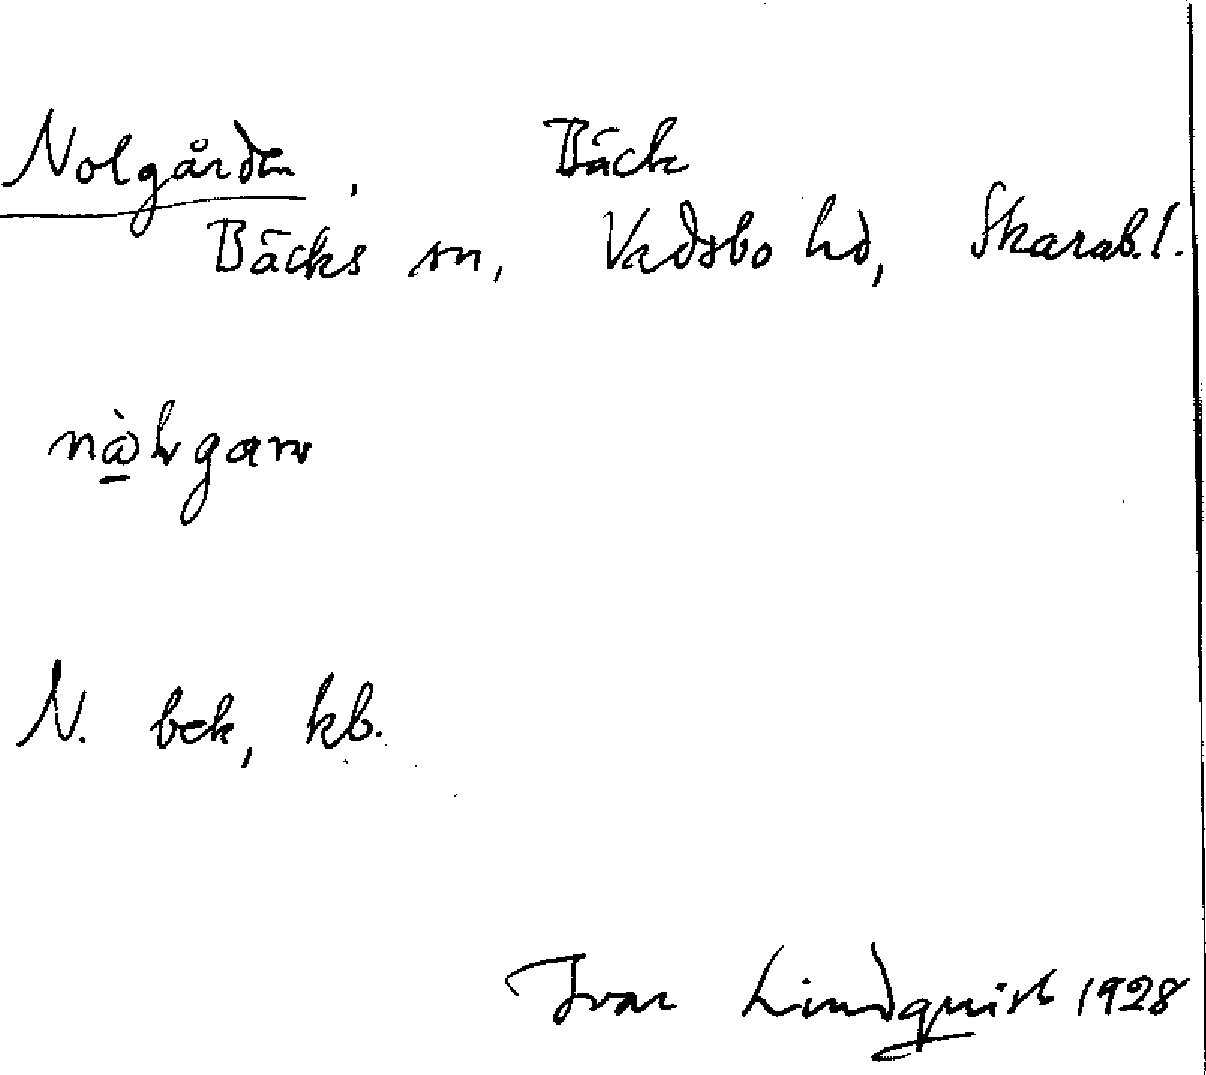 Nolgården, Bäck
Bäcks sn, Vadsbo hd, Skarab. l.
N. bek, kb.
Ivar Lindquist 1928